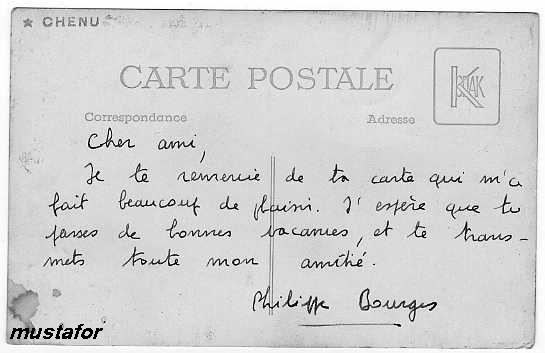 ★ CHENU
CARTE POSTALE
KODAK
Correspondance
Adresse
Cher ami,
Je te remercie de ta carte qui m'a
fait beaucoup de plaisir. J'espère que tu
passes de bonnes vacances, et te trans-
mets toute mon amitié.
Philippe Bourges
mustafor